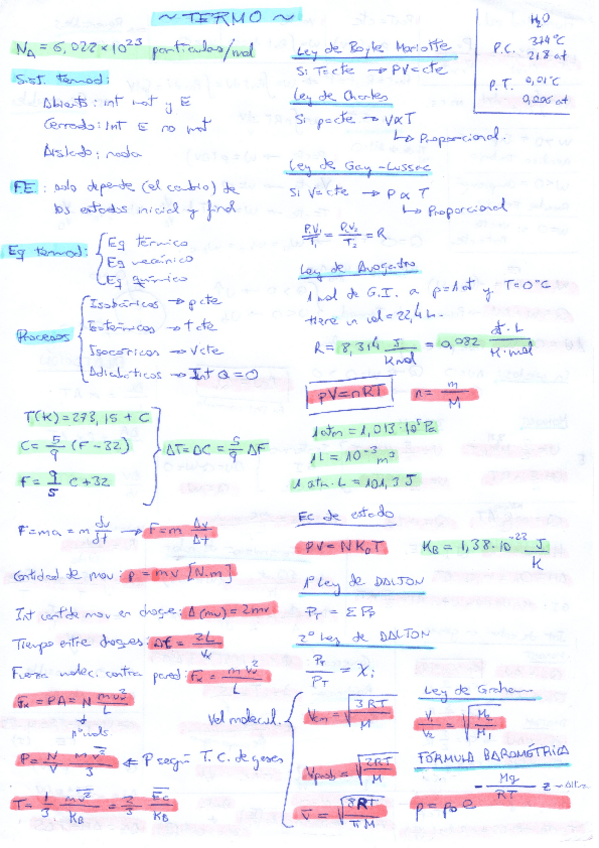 ~ TERMO ~
N_A = 6,022 x 10^23 partículas/mol
Sist. termod:
Abierto: int mat y E
Cerrado: int E no mat
Aislado: nada
FE: solo depende (el cambio) de
los estados inicial y final
Eq termod: { Eq térmico
Eq mecánico
Eq químico
Procesos { Isobáricos → p cte
Isotérmicos → T cte
Isocóricos → V cte
Adiabáticos → Int Q = 0
T(K) = 273,15 + C
C = 5/9 (F - 32)
F = 9/5 C + 32
ΔT = ΔC = 5/9 ΔF
F = ma = m dv/dt → F = m Δv/Δt
Cantidad de mov: p = mv [N.m]
Int cant de mov en choque: Δ(mv) = 2mv
Tiempo entre choques: Δt = 2L/Vx
Fuerza molec. contra pared: Fx = m vx²/L
Fx = PA = N m vx²/L
nº mols
P = N/V m v²/3 ← P según T. C. de gases
T = 1/3 m v²/K_B = 2/3 Ec/K_B
H2O
P.C. 374°C
218 at
P.T. 0,01°C
0,006 at
Ley de Boyle Mariotte
Si T = cte → PV = cte
Ley de Charles
Si p = cte → V ∝ T
↳ Proporcional
Ley de Gay-Lussac
Si V = cte → P ∝ T
↳ Proporcional
P1V1/T1 = P2V2/T2 = R
Ley de Avogadro
1 mol de G.I. a p = 1 at y T = 0°C
tiene un vol = 22,4 L.
R = 8,314 J/K mol = 0,082 at·L/K·mol
pV = nRT n = m/M
1 atm = 1,013·10^5 Pa
1L = 10^-3 m³
1 atm·L = 101,3 J
Ec de estado
PV = N K_B T K_B = 1,38·10^-22 J/K
1º Ley de DALTON
P_T = Σ Pp
2º Ley de DALTON
Pi/P_T = Xi
Vel molecul. { Vcm = √(3RT/M)
Vprob = √(2RT/M)
V = √(8RT/πM)
Ley de Graham
V1/V2 = √(M2/M1)
FÓRMULA BAROMÉTRICA
p = p0 e^(-Mg/RT z) → Altura